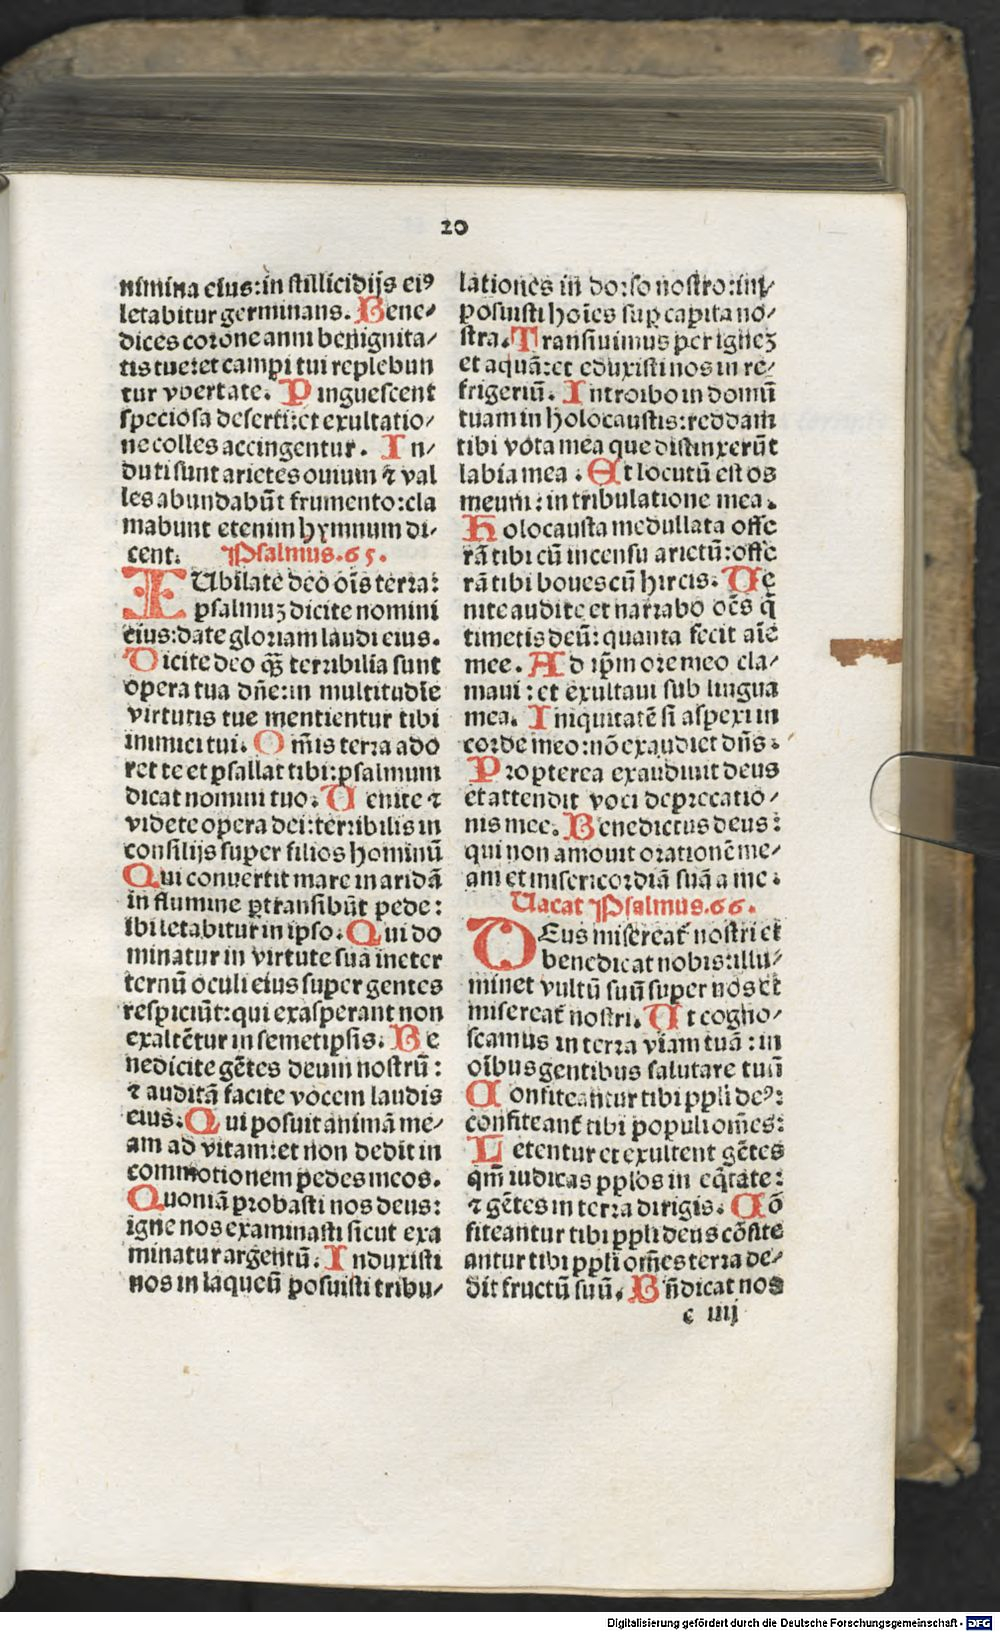 20
nimina eius:in stillicidijs eiꝰ
letabitur germinans. Bene⸗
dices corone anni benignita⸗
tis tue:et campi tui replebun
tur vbertate. Pinguescent
speciosa deserti:et exultatio⸗
ne colles accingentur. In⸗
duti sunt arietes ouium ⁊ val
les abundabūt frumento:cla
mabunt etenim hymnum di⸗
cent. Psalmus.65.
IUbilate deo oīs terra:
psalmuʒ dicite nomini
eius:date gloriam laudi eius.
Dicite deo q̄ʒ terribilia sunt
opera tua dn̄e:in multitudīe
virtutis tue mentientur tibi
inimici tui. Om̄is terra ado
ret te et psallat tibi:psalmum
dicat nomini tuo. Uenite ⁊
videte opera dei:terribilis in
consilijs super filios hominū
Qui conuertit mare in aridā
in flumine ꝑtransibūt pede:
ibi letabitur in ipso. Qui do
minatur in virtute sua in eter
ternū oculi eius super gentes
respiciūt:qui exasperant non
exaltētur in semetipsis. Be
nedicite gētes deum nostrū:
⁊ auditā facite vocem laudis
eius. Qui posuit animā me⸗
am ad vitam:et non dedit in
commotionem pedes meos.
Quoniā probasti nos deus:
igne nos examinasti sicut exa
minatur argentū. Induxisti
nos in laqueū posuisti tribu⸗
lationes in dorso nostro:im⸗
posuisti hoīes suꝑ capita no⸗
stra. Transiuimus per igneʒ
et aquā:et eduxisti nos in re⸗
frigeriū. Introibo in domū
tuam in holocaustis:reddam
tibi vota mea que distinxerūt
labia mea. Et locutū est os
meum:in tribulatione mea.
Holocausta medullata offe
rā tibi cū incensu arietū:offe
rā tibi boues cū hircis. Ue
nite audite et narrabo oēs q̄
timetis deū:quanta fecit aīe
mee. Ad ip̄m ore meo cla⸗
maui:et exultaui sub lingua
mea. Iniquitatē si aspexi in
corde meo:nō exaudiet dn̄s.
Propterea exaudiuit deus
et attendit voci deprecatio⸗
nis mee. Benedictus deus:
qui non amouit orationē me⸗
am et misericordiā suā a me.
Uacat Psalmus.66.
DEus misereat᷑ nostri et
benedicat nobis:illu⸗
minet vultū suū super nos et
misereat᷑ nostri. Ut cogno⸗
scamus in terra viam tuā:in
oībus gentibus salutare tuū
Confiteantur tibi ppl̄i deꝰ:
confiteant᷑ tibi populi om̄es:
Letentur et exultent gētes
qm̄ iudicas ppl̄os in eq̄tate:
⁊ gētes in terra dirigis. Cō
fiteantur tibi ppl̄i deus cōfite
antur tibi ppl̄i om̄es terra de⸗
dit fructū suū. Bn̄dicat nos
c iiij
Digitalisierung gefördert durch die Deutsche Forschungsgemeinschaft - DFG